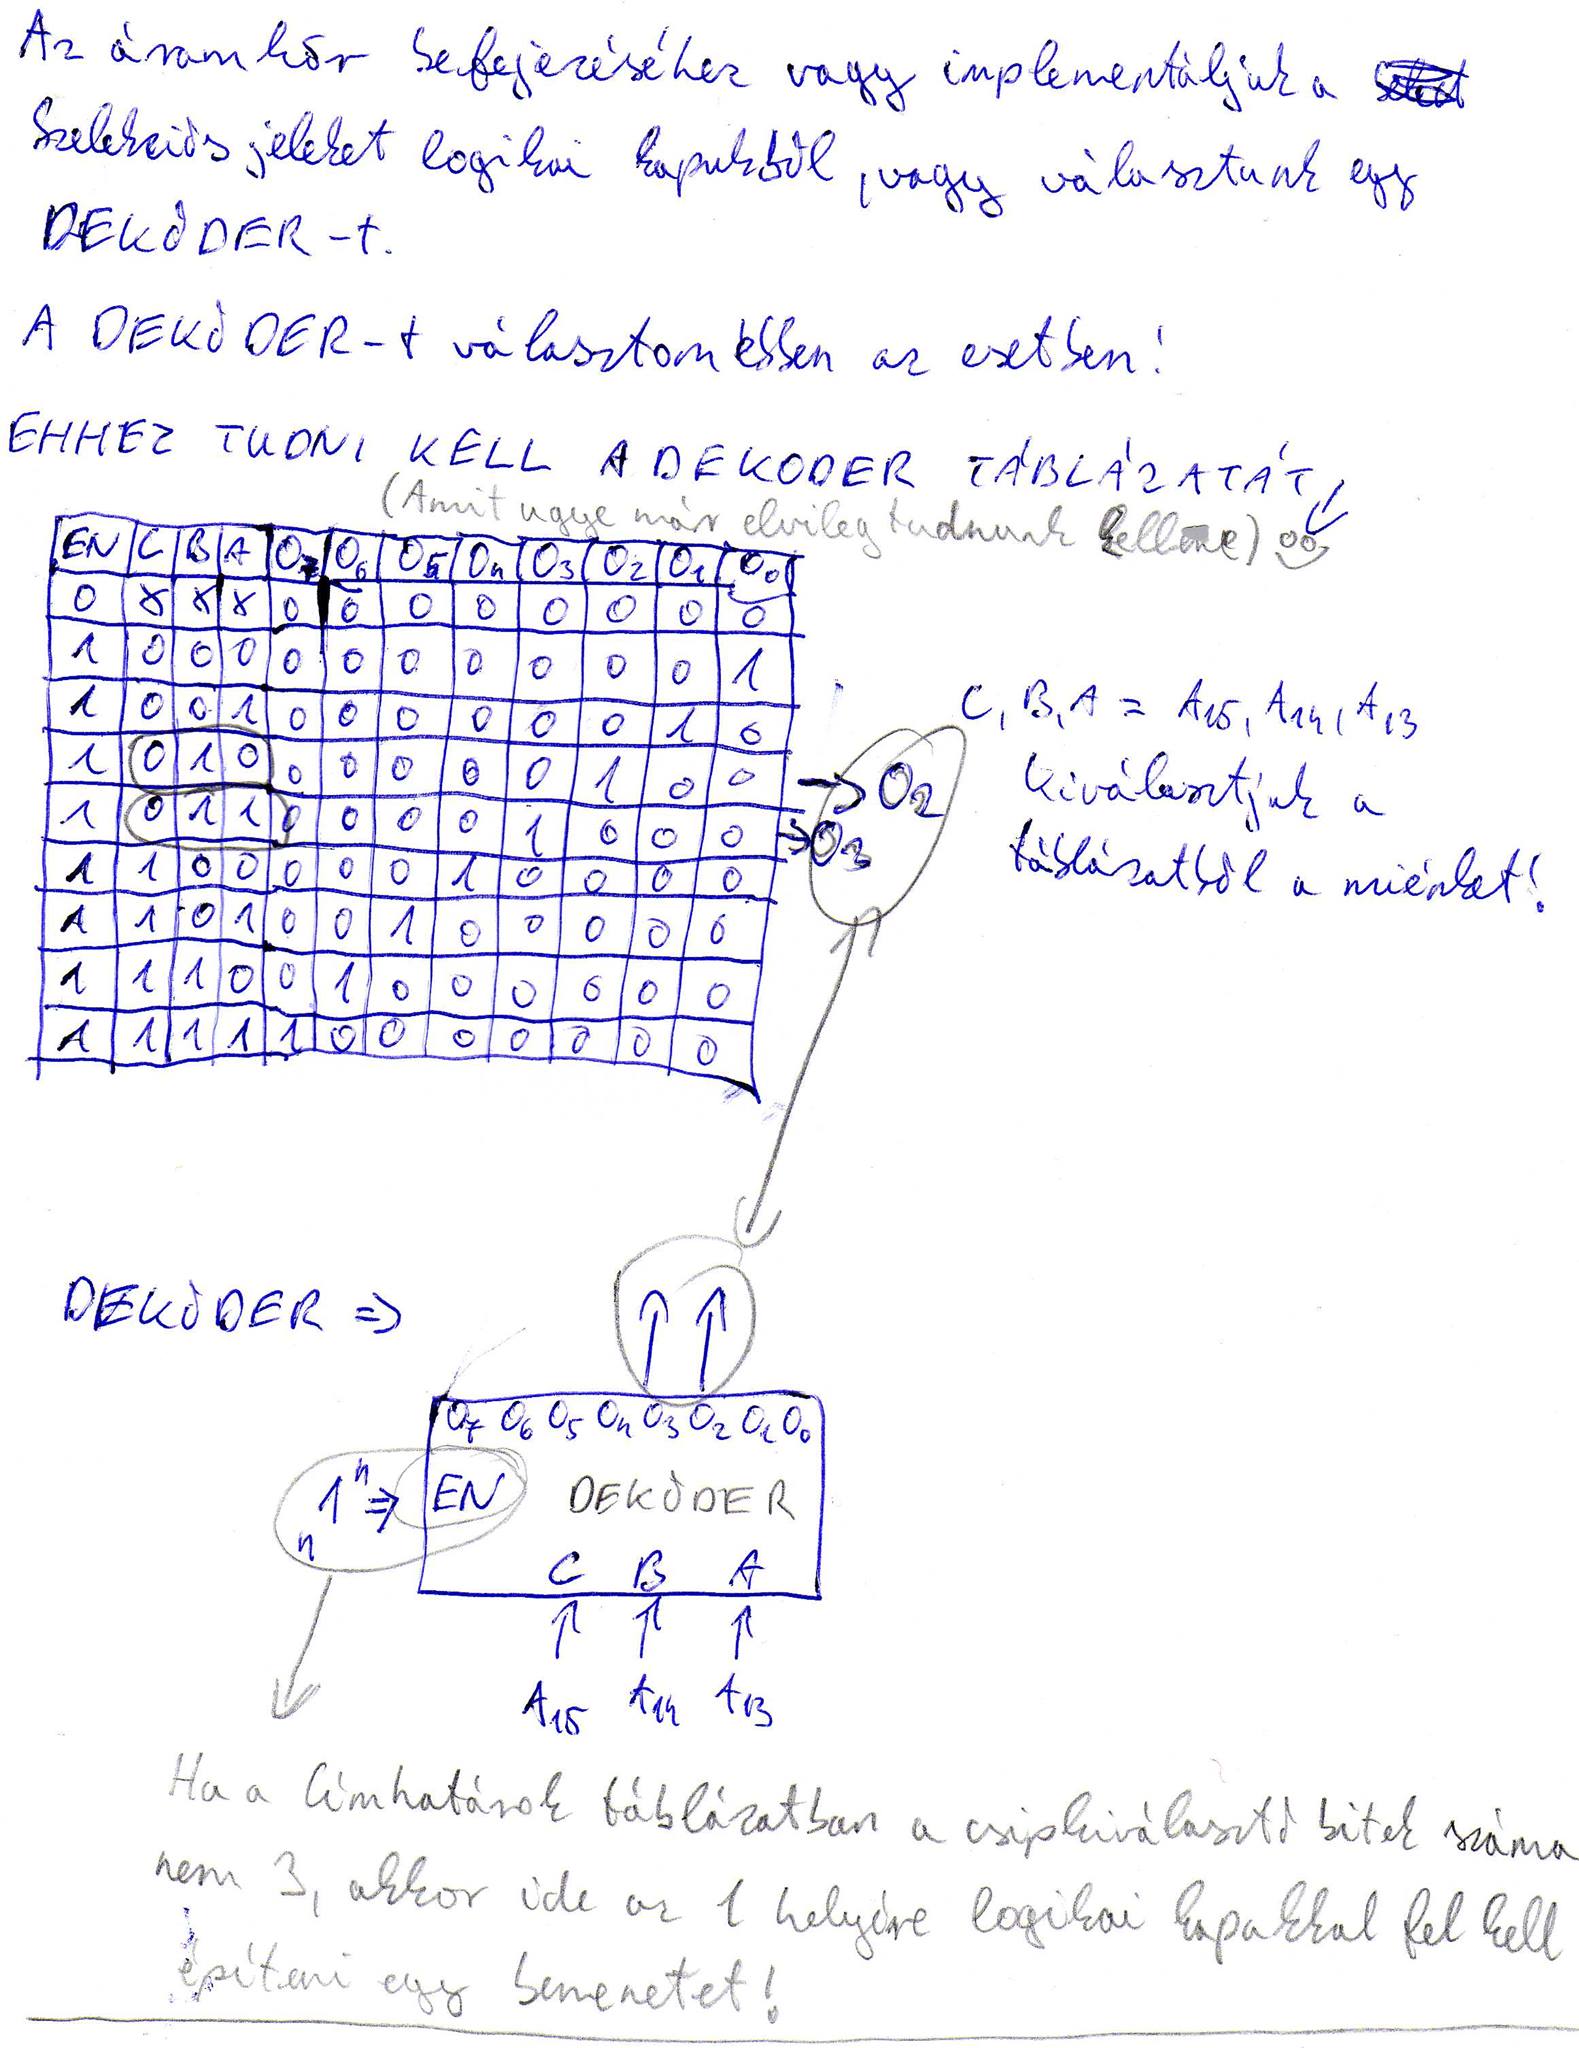 Az áramkör befejezéséhez vagy implementáljuk a
Szelekciós jeleket logikai kapukból, vagy választunk egy
DEKÓDER-t.
A DEKÓDER-t választom ebben az esetben!
EHHEZ TUDNI KELL A DEKODER TÁBLÁZATÁT!
(Amit ugye már elvileg tudnunk kellene)
EN C B A O7 O6 O5 O4 O3 O2 O1 O0
0 x x x 0 0 0 0 0 0 0 0
1 0 0 0 0 0 0 0 0 0 0 1
1 0 0 1 0 0 0 0 0 0 1 0
1 0 1 0 0 0 0 0 0 1 0 0 → O2
1 0 1 1 0 0 0 0 1 0 0 0 → O3
1 1 0 0 0 0 0 1 0 0 0 0
1 1 0 1 0 0 1 0 0 0 0 0
1 1 1 0 0 1 0 0 0 0 0 0
1 1 1 1 1 0 0 0 0 0 0 0
C, B, A = A15, A14, A13
Kiválasztjuk a
táblázatból a miénket!
DEKÓDER ⇒
O7 O6 O5 O4 O3 O2 O1 O0
"1" ⇒ EN DEKÓDER
C B A
A15 A14 A13
Ha a címhatárok táblázatban a csipkiválasztó bitek száma
nem 3, akkor ide az 1 helyére logikai kapukkal fel kell
építeni egy bemenetet!